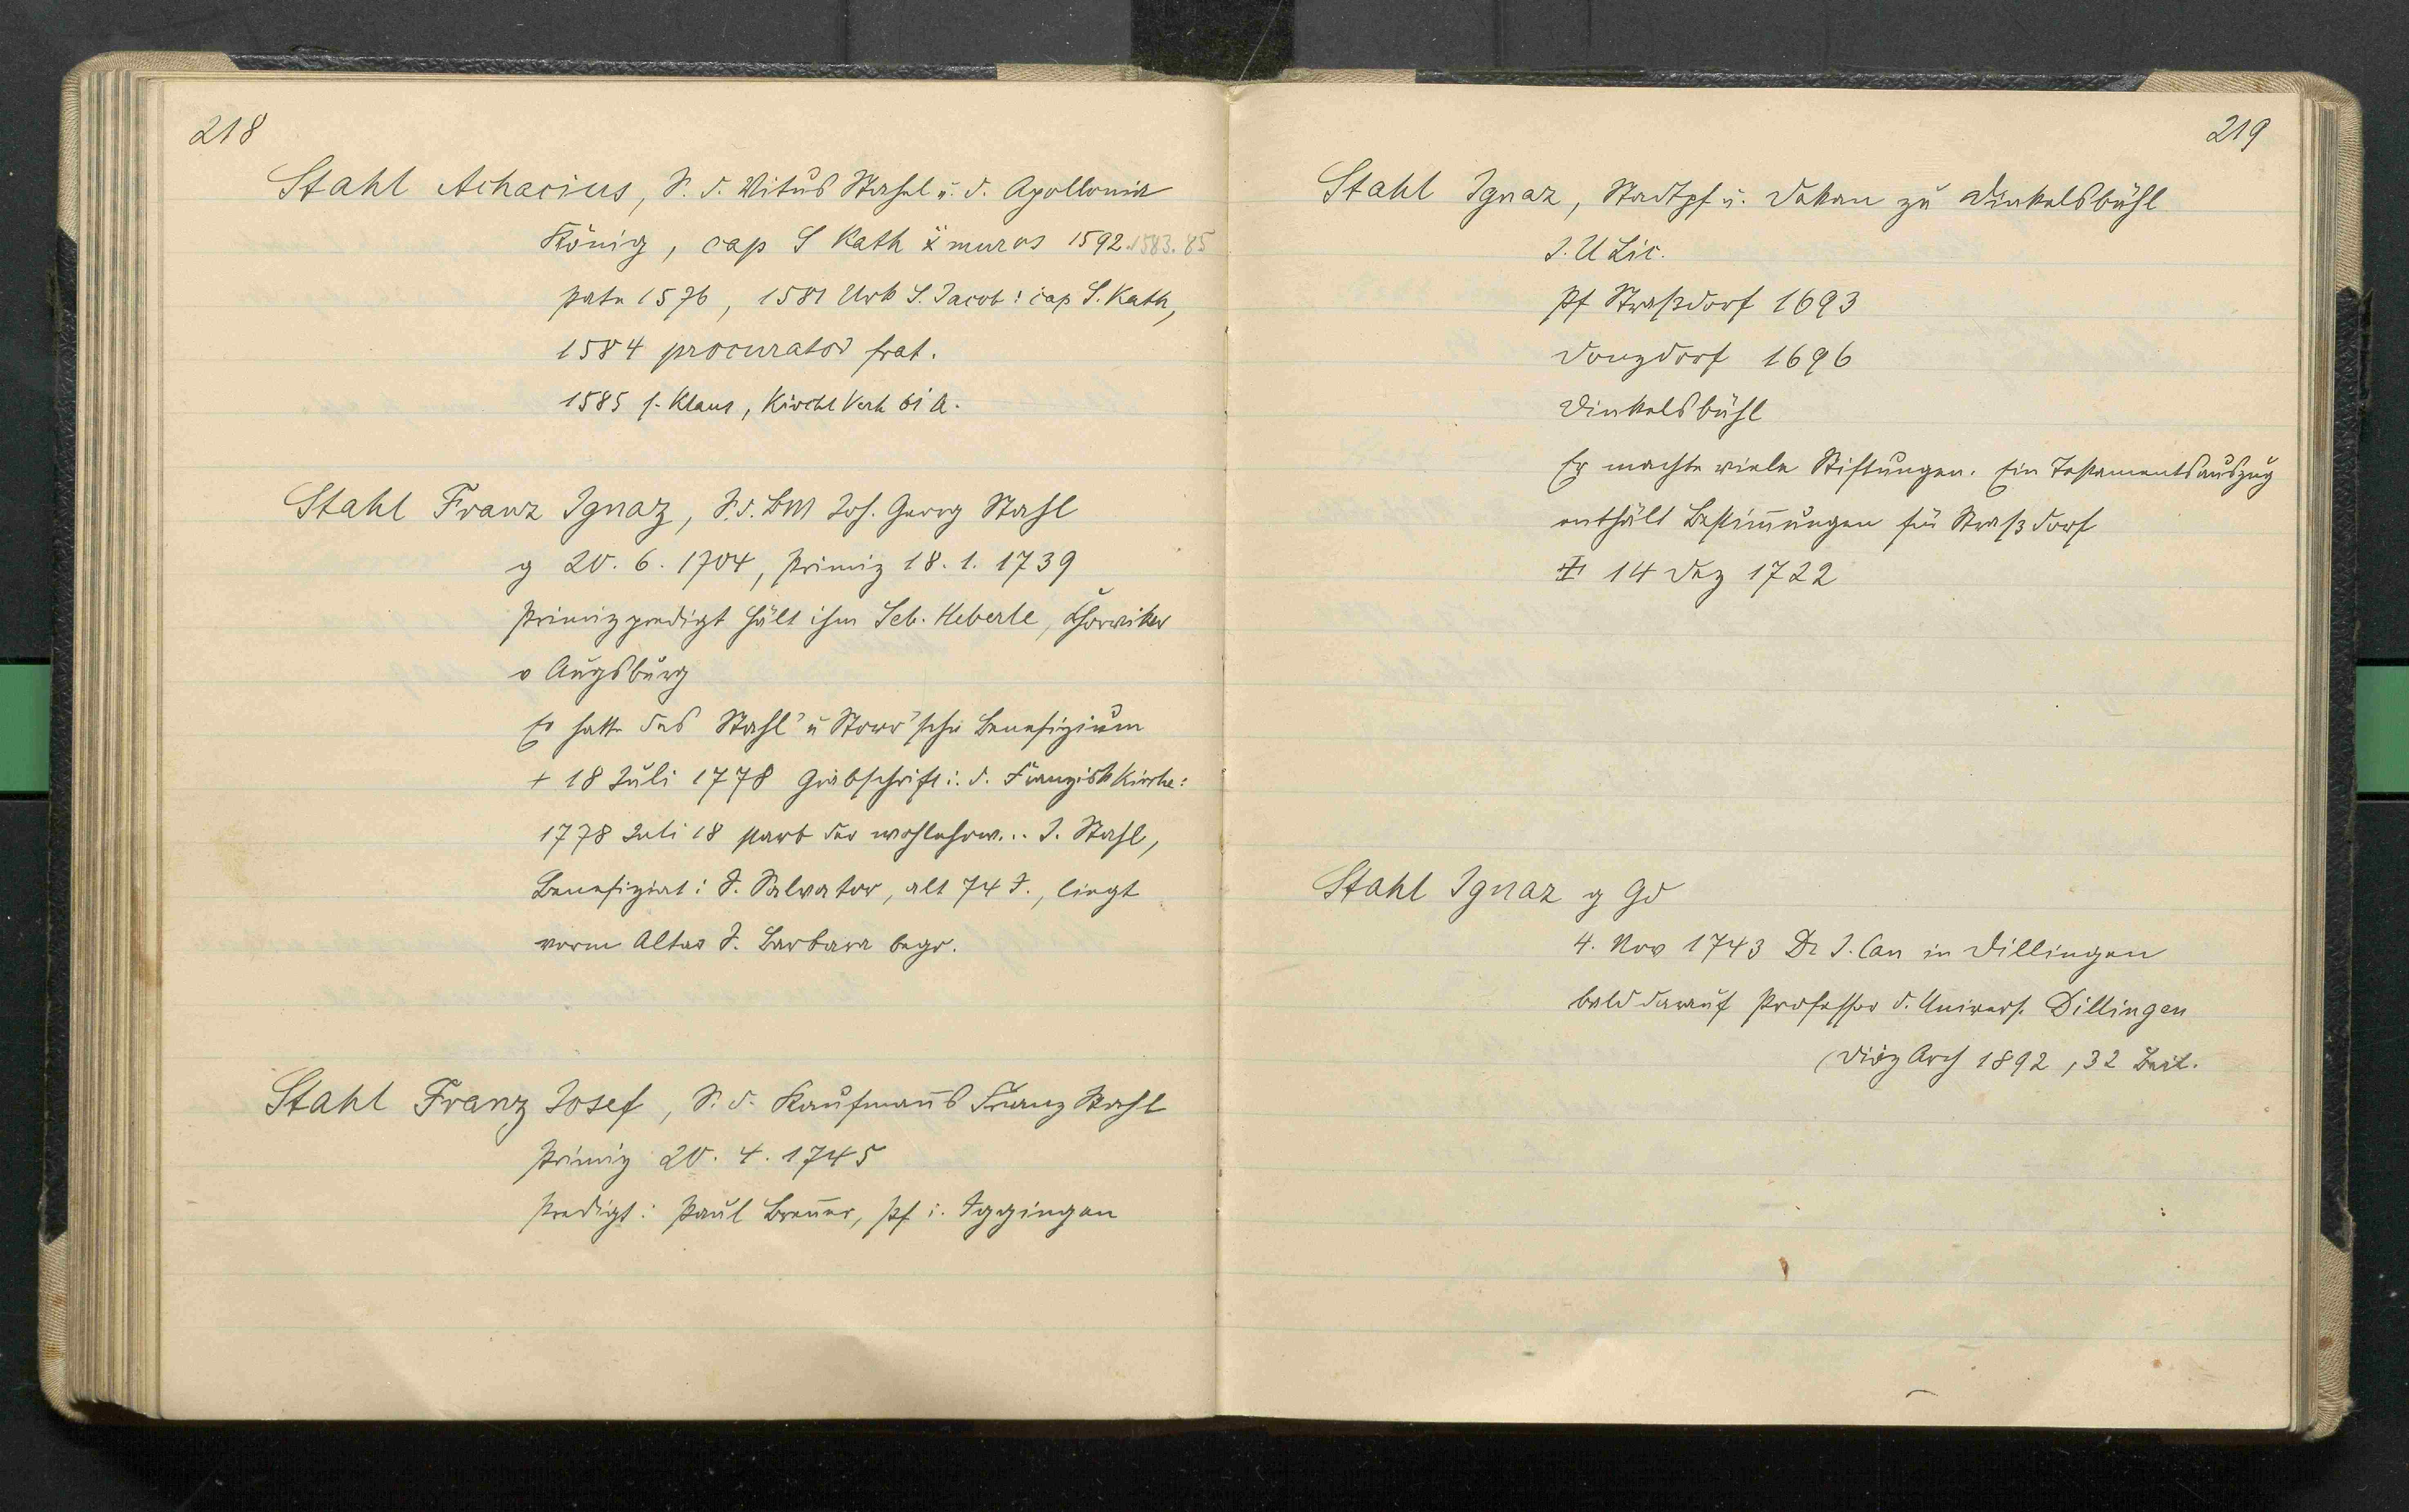 218
Stahl Achacius, S. d. Vitus Stahl u. d. Apollonia
König, cap S Kath x muros 1592. 1583. 85
pate 1576, 1581 Urk S. Jacob: cap S. Kath,
1584 procurator frat.
1585 s. Klaus, Kirchl Verh 61 a.
Stahl Franz Ignaz, S. d. BM Joh. Georg Stahl
g 20. 6. 1704, Primiz 18. 1. 1739
Primizpredigt hält ihm Seb. Heberle, Chorvikar
v Augsburg
Er hatte das Stahl' u Storr'sche Benefizium
+ 18 Juli 1778 Grabschrift i. d. Franzisk Kirche:
1778 Juli 18 starb der wohlehrw... I. Stahl,
Benefiziat i S. Salvator, alt 74 J., liegt
vorm Altar S. Barbara begr.
Stahl Franz Josef, S. d. Kaufmanns Franz Stahl
Primiz 20. 4. 1745
Predigt: Paul Brenner, Pf i. Iggingen
219
Stahl Ignaz, Stadtpf u. Dekan zu Dinkelsbühl
I. U Lic.
Pf Straßdorf 1693
Donzdorf 1696
Dinkelsbühl
Er machte viele Stiftungen. Ein Testamentsauszug
enthält Bestimmungen für Straßdorf
14 Dez 1722
Stahl Ignaz g Gd
4. Nov 1743 Dr I. Can in Dillingen
bald darauf Professor d. Univers. Dillingen
(Diöz Arch 1892, 32 Beil.